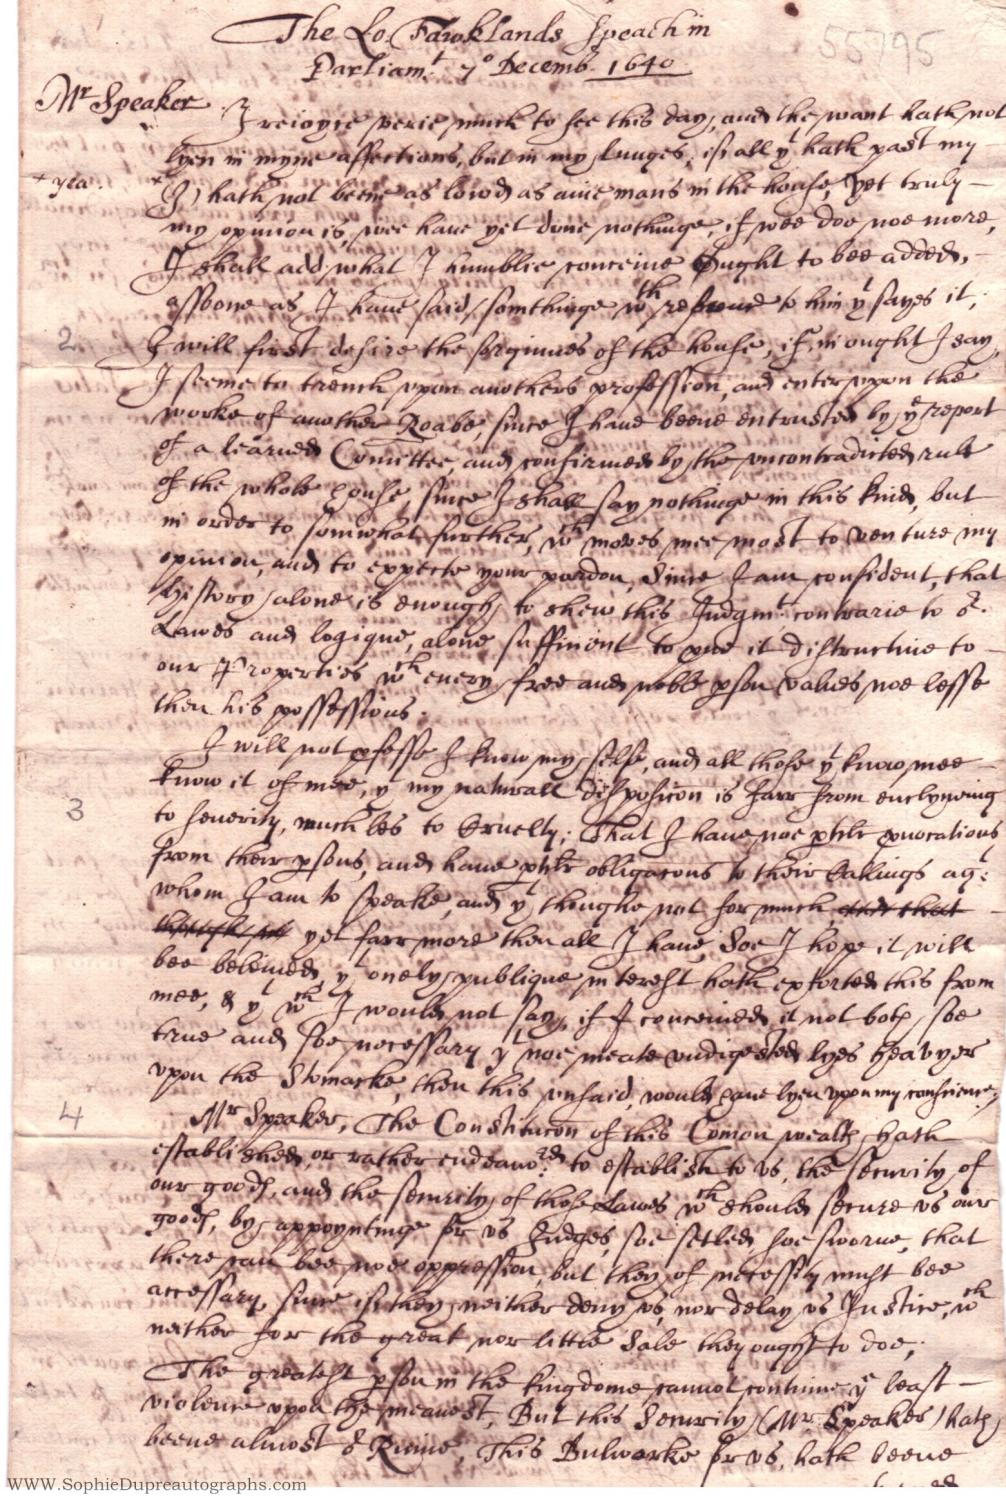 The Lo. Fawklands Speach in
Parliamt. 7o Decemb. 1640
55795
Mr Speaker I reioyce verie much to see this day, and the want hath not
lyen in myne affections, but in my lunges, if all yt hath past my
+ yea
I) hath not beene as lowd as anie mans in the house, yet truly
my opinion is, wee haue yet done nothinge, if wee doe noe more,
I shall add what I humblie conceiue Ought to bee added,
assoone as I haue said somthinge wth to him yt sayes it,
2
I will first desire the forgiunes of the house, if in ought I say,
I seeme to trench vpon anothers profession, and enter vpon the
worke of another Roabe, since I haue beene entrusted by ye report
of a learned Comittee, and confirmed by the vncontradicted rule
of the whole house since I shall say nothinge in this kind, but
in order to somwhat further, wch moves mee most to venture my
opinion, and to expecte your pardon, Since I am confident, that
History alone is enough to shew this Judgmt. contrarie to or.
Lawes and logique, alone suffitient to proue it distructiue to
our Properties wch euery free and noble pson values noe lesse
then his possessions.
I will not pfesse I know my selfe, and all those yt know mee
3
know it of mee, yt my naturall disposicon is farr from enclyning
to seuerity, much les to Cruelty; That I haue noe ptclr pvocations
from their psons, and haue ptclr obligacons to their Callings agt:
whom I am to speake, and yt thoughe not for much
yet farr more then all I haue, Soe I hope it will
bee beleiued, yt onely publique interest hath extorted this from
mee, & yt wch I would not say, if I conceiued it not both soe
true and soe necessary yt noe meate vndigested lyes heavyer
vpon the Stomacke, then this vnsaid, would haue lyen vpon my conscience;
4
Mr Speaker, The Constitucon of this Comon wealth hath
established, or rather endeavord to establish to vs, the security of
our goods, and the security of those Lawes wch should secure vs our
goods, by appoyntinge for vs Judges, soe setled, soe sworne, that
there can bee noe oppression, but they of necessity must bee
accessary, since if they neither deny vs, nor delay vs Justice, wch
neither for the great nor little Sale they ought to doe;
The greatest pson in the kingdome cannot continue ye least
violence vpon the meanest, But this Security (Mr Speaker) hath
beene almost or Ruine, This Bulwarke for vs, hath beene
www.SophieDupreautographs.com